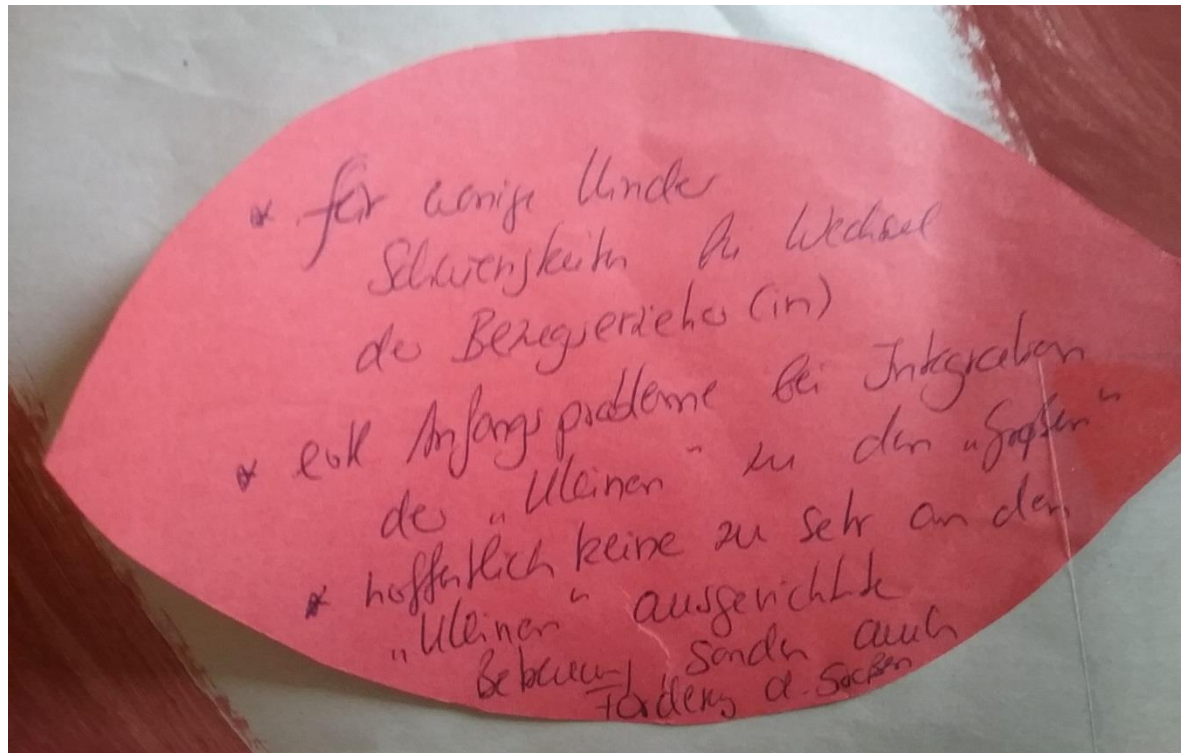 * für wenige Kinder
Schwierigkeiten bei Wechsel
der Bezugserzieher (in)
* evtl Anfangsprobleme bei Integration
der „Kleinen" zu den „Großen"
* hoffentlich keine zu sehr an den
„Kleinen" ausgerichtete
Betreuung, sondern auch
Förderung d. Großen